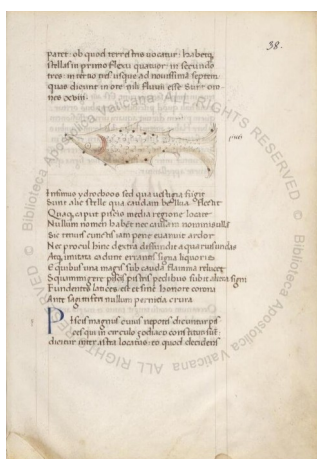 38.
paret· ob quod terrestris uocatur· habetq;
stellas in primo flexu quatuor· in secundo
tres· in tertio tres usque ad nouissima septem·
quas dicunt in ore nili fluuii esse Sunt oto
nes xviii·
Infimus ydrochoos sed qua uestigia figit
Sunt alie stelle qua caudam bellua flectit
Quaq; caput piscis media regione locate
Nullum nomen habet nec causam nominis ulla
Sic tenuis cunctis iam pene euanuit ardor
Nec procul hinc dextra diffundit aquarius undas
Atq; imitata cadunt errantis signa liquoris
E quibus una magis sub cauda flamma relucet
Fundentes latices· est et sine honore corona
Ante sagittiferi nullum pernicia crura·
Piscis magnus cuius nepotes dicuntur pis
ces qui in circulo zodiaco constituti sunt
dicitur inter astra locatus· eo quod decidens
© Biblioteca Apostolica Vaticana ALL RIGHTS RESERVED
© Biblioteca Apostolica Vaticana ALL RIGHTS RESERVED